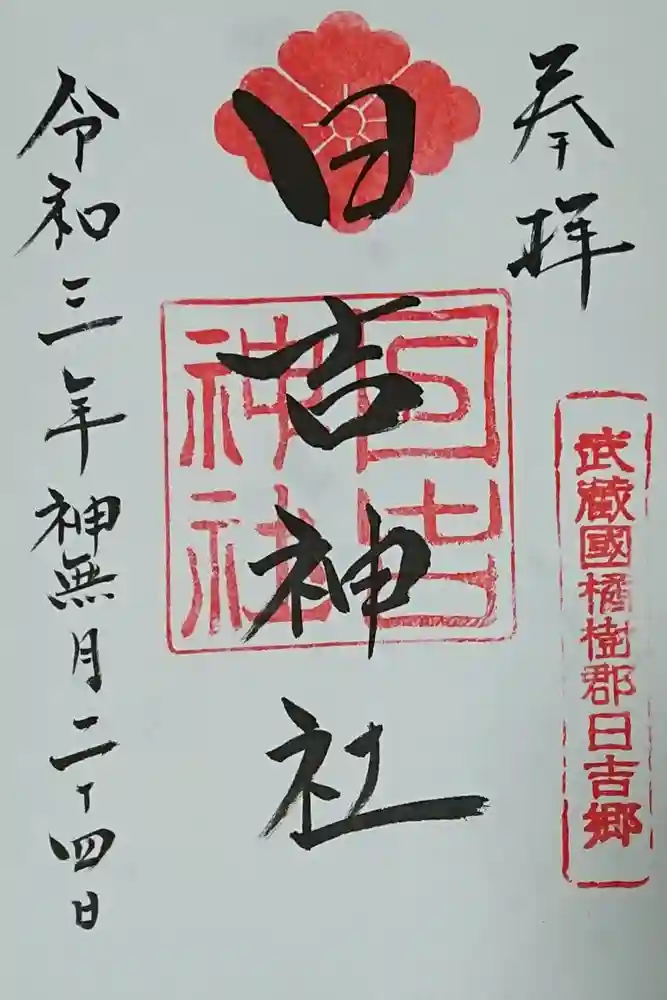 奉拝
武蔵國橘樹郡日吉郷
日吉神社
日吉神社
令和三年神無月二十四日